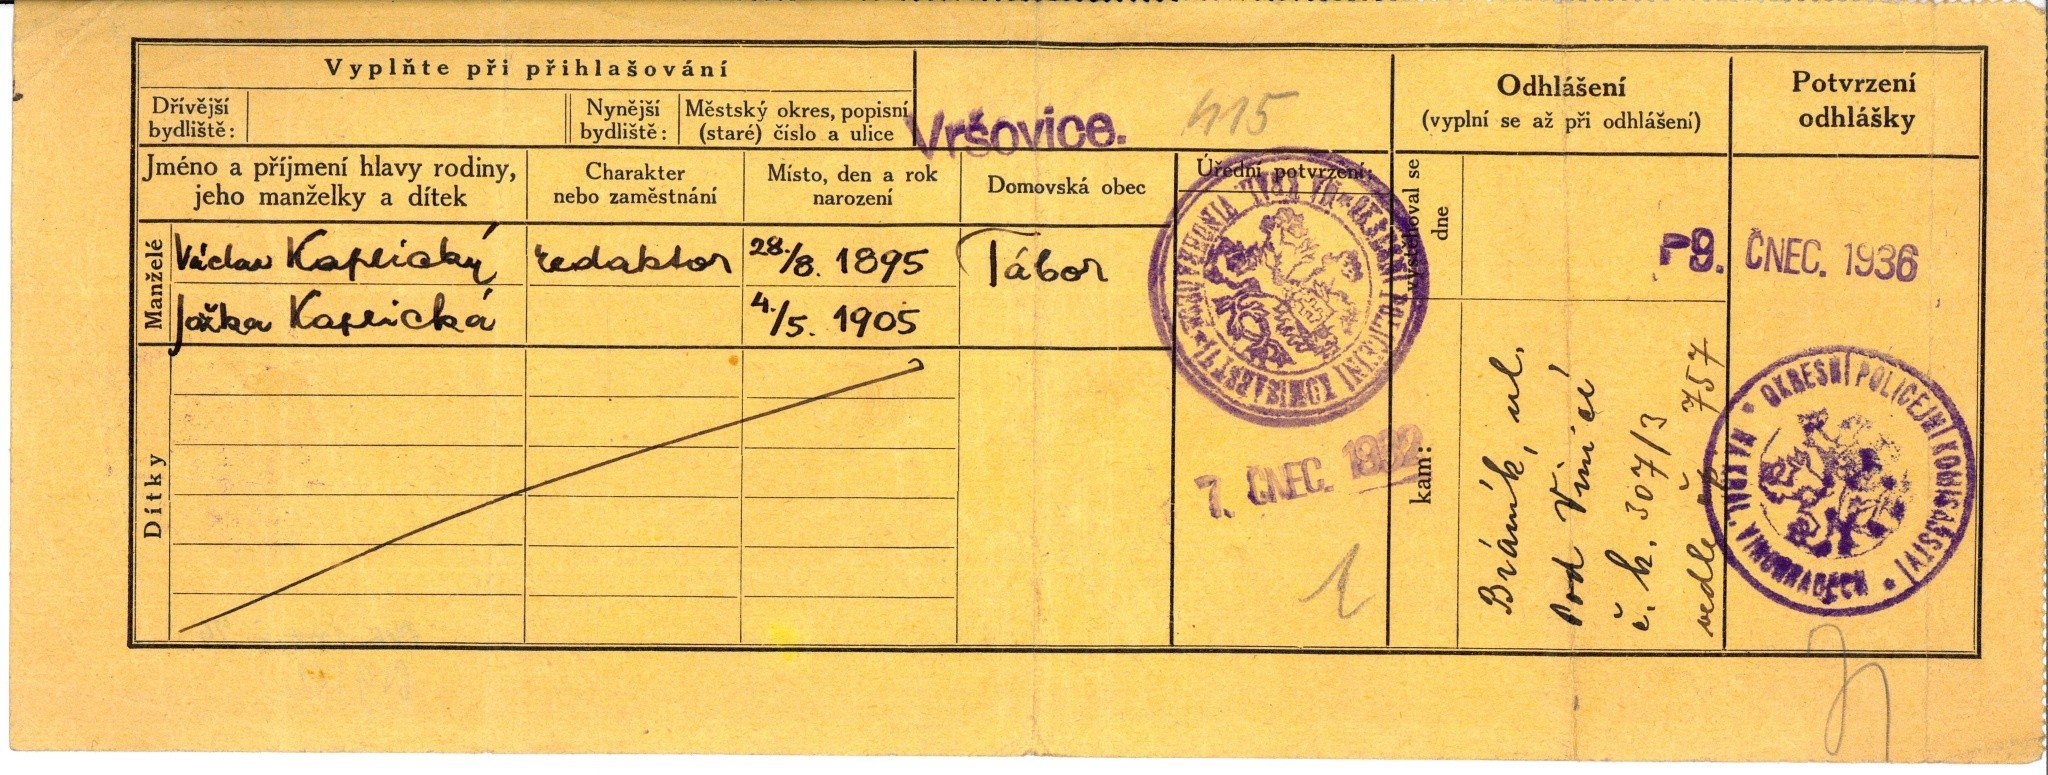 Vyplňte při přihlašování
Dřívější bydliště:
Nynější bydliště:
Městský okres, popisní (staré) číslo a ulice
Vršovice.
415
Jméno a příjmení hlavy rodiny,
jeho manželky a dítek
Charakter
nebo zaměstnání
Místo, den a rok
narození
Domovská obec
Úřední potvrzení:
Manželé
Václav Kaplický
redaktor
28./8. 1895
Tábor
Jožka Kaplická
4./5. 1905
Dítky
7. ČNEC. 1932
1
Odhlášení
(vyplní se až při odhlášení)
vystěhoval se
dne
kam:
Bráník, ul.
Pod Vinicí
č. h. 307/3
vedle č. 757
Potvrzení
odhlášky
9. ČNEC. 1936
OKRESNÍ POLICEJNÍ KOMISAŘSTVÍ
NA KRÁL. VINOHRADECH